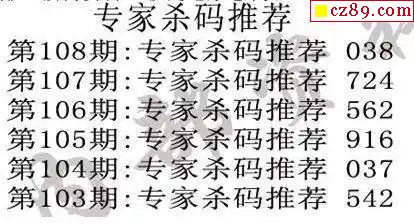 cz89.com
专家杀码推荐
第108期:专家杀码推荐 038
第107期:专家杀码推荐 724
第106期:专家杀码推荐 562
第105期:专家杀码推荐 916
第104期:专家杀码推荐 037
第103期:专家杀码推荐 542